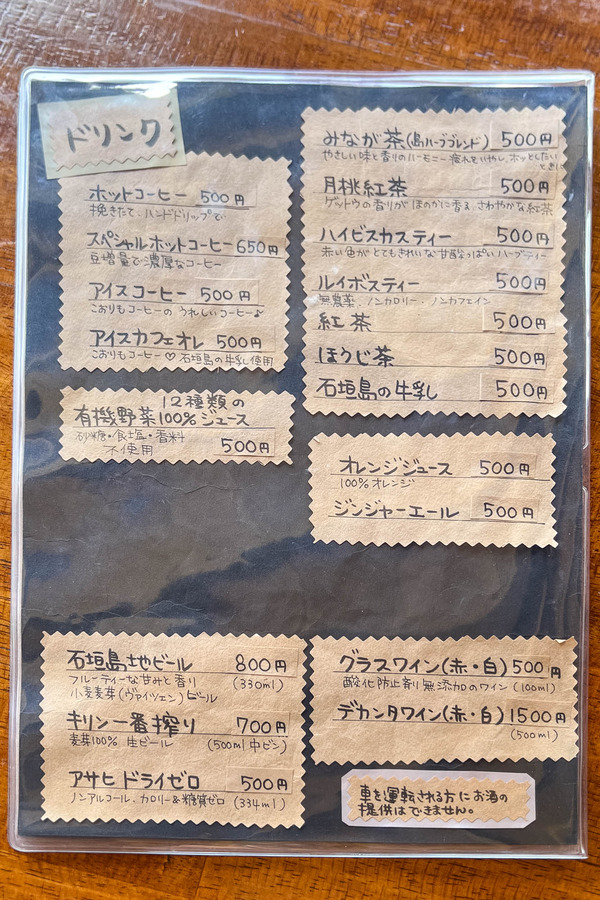 ドリンク
ホットコーヒー 500円
挽きたて、ハンドドリップで
スペシャルホットコーヒー 650円
豆増量で濃厚なコーヒー
アイスコーヒー 500円
こおりもコーヒーの うれしいコーヒー♪
アイスカフェオレ 500円
こおりもコーヒー♡ 石垣島の牛乳使用
12種類の
有機野菜100%ジュース
砂糖・食塩・香料
不使用 500円
みなが茶(島ハーブブレンド) 500円
やさしい味と香りのハーモニー 疲れをいやし、ホッとしたい
ときに
月桃紅茶 500円
ゲットウの香りが ほのかに香る、さわやかな紅茶
ハイビスカスティー 500円
赤い色が とてもきれいな甘酸っぱいハーブティー
ルイボスティー 500円
無農薬、ノンカロリー、ノンカフェイン
紅茶 500円
ほうじ茶 500円
石垣島の牛乳 500円
オレンジジュース 500円
100%オレンジ
ジンジャーエール 500円
石垣島地ビール 800円
フルーティーな甘みと香り (330ml)
小麦麦芽(ヴァイツェン)ビール
キリン一番搾り 700円
麦芽100% 生ビール (500ml 中ビン)
アサヒ ドライゼロ 500円
ノンアルコール、カロリー&糖質ゼロ (334ml)
グラスワイン(赤・白) 500円
酸化防止剤無添加のワイン (100ml)
デカンタワイン(赤・白) 1500円
(500ml)
車を運転される方にお酒の
提供はできません。